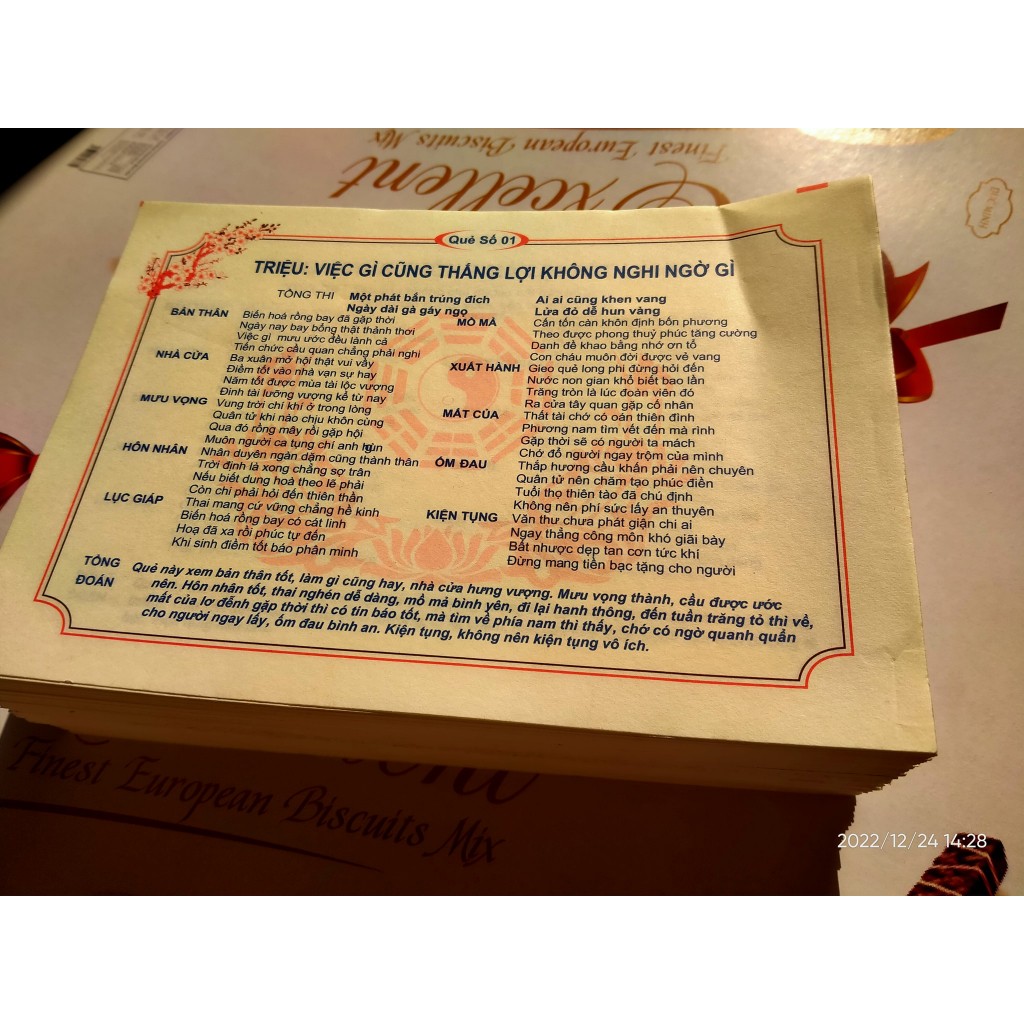 Excellent
Finest European Biscuits Mix
ĐỨC MINH
Quẻ Số 01
TRIỆU: VIỆC GÌ CŨNG THẮNG LỢI KHÔNG NGHI NGỜ GÌ
TỔNG THI
Một phát bắn trúng đích
Ngày dài gà gáy ngọ
Ai ai cũng khen vang
Lửa đỏ dễ hun vàng
BẢN THÂN
Biến hoá rồng bay đã gặp thời
Ngày nay bay bổng thật thảnh thơi
Việc gì mưu ước đều lành cả
Tiến chức cầu quan chẳng phải nghi
NHÀ CỬA
Ba xuân mở hội thật vui vầy
Điềm tốt vào nhà vạn sự hay
Năm tốt được mùa tài lộc vượng
Đinh tài lưỡng vượng kể từ nay
MƯU VỌNG
Vung trời chí khí ở trong lòng
Quân tử khi nào chịu khôn cùng
Qua đó rồng mây rồi gặp hội
Muôn người ca tụng chí anh hùng
HÔN NHÂN
Nhân duyên ngàn dặm cũng thành thân
Trời định là xong chẳng sợ trân
Nếu biết dung hoà theo lẽ phải
Còn chi phải hỏi đến thiên thần
LỤC GIÁP
Thai mang cứ vững chẳng hề kinh
Biến hoá rồng bay có cát linh
Hoạ đã xa rồi phúc tự đến
Khi sinh điềm tốt báo phân minh
MỒ MẢ
Cấn tốn càn khôn định bốn phương
Theo được phong thuỷ phúc tăng cường
Danh đề khao bảng nhớ ơn tổ
Con cháu muôn đời được vẻ vang
XUẤT HÀNH
Gieo quẻ long phi đừng hỏi đến
Nước non gian khổ biết bao lần
Trăng tròn là lúc đoàn viên đó
Ra cửa tây quan gặp cố nhân
MẤT CỦA
Thất tài chớ có oán thiên đình
Phương nam tìm vết đến mà rình
Gặp thời sẽ có người ta mách
Chớ đổ người ngay trộm của mình
ỐM ĐAU
Thắp hương cầu khấn phải nên chuyên
Quân tử nên chăm tạo phúc điền
Tuổi thọ thiên tào đã chú định
Không nên phí sức lấy an thuyên
KIỆN TỤNG
Văn thư chưa phát giận chi ai
Ngay thẳng công môn khó giãi bày
Bất nhược dẹp tan cơn tức khí
Đừng mang tiền bạc tặng cho người
TỔNG
ĐOÁN
Quẻ này xem bản thân tốt, làm gì cũng hay, nhà cửa hưng vượng. Mưu vọng thành, cầu được ước
nên. Hôn nhân tốt, thai nghén dễ dàng, mồ mả bình yên, đi lại hanh thông, đến tuần trăng tỏ thì về,
mất của lơ đễnh gặp thời thì có tin báo tốt, mà tìm về phía nam thì thấy, chớ có ngờ quanh quẩn
cho người ngay lấy, ốm đau bình an. Kiện tụng, không nên kiện tụng vô ích.
Finest European Biscuits Mix
2022/12/24 14:28